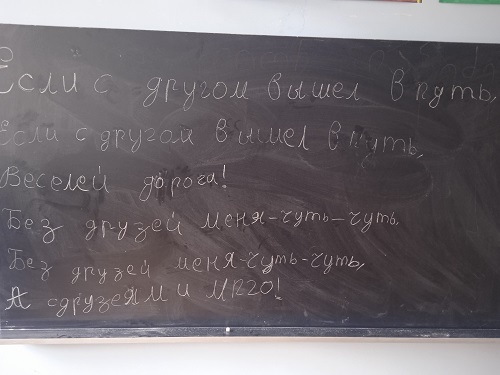 Если с другом вышел в путь,
Если с другом вышел в путь,
Веселей дорога!
Без друзей меня-чуть-чуть,
Без друзей меня-чуть-чуть,
А с друзеями МНОГО!